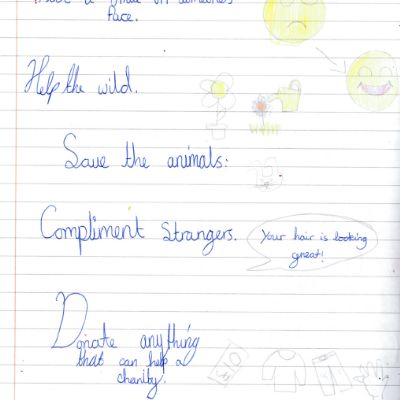 face.
Help the wild.
Save the animals:
Compliment strangers.
Your hair is looking
great!
Donate anything
that can help a
charity!